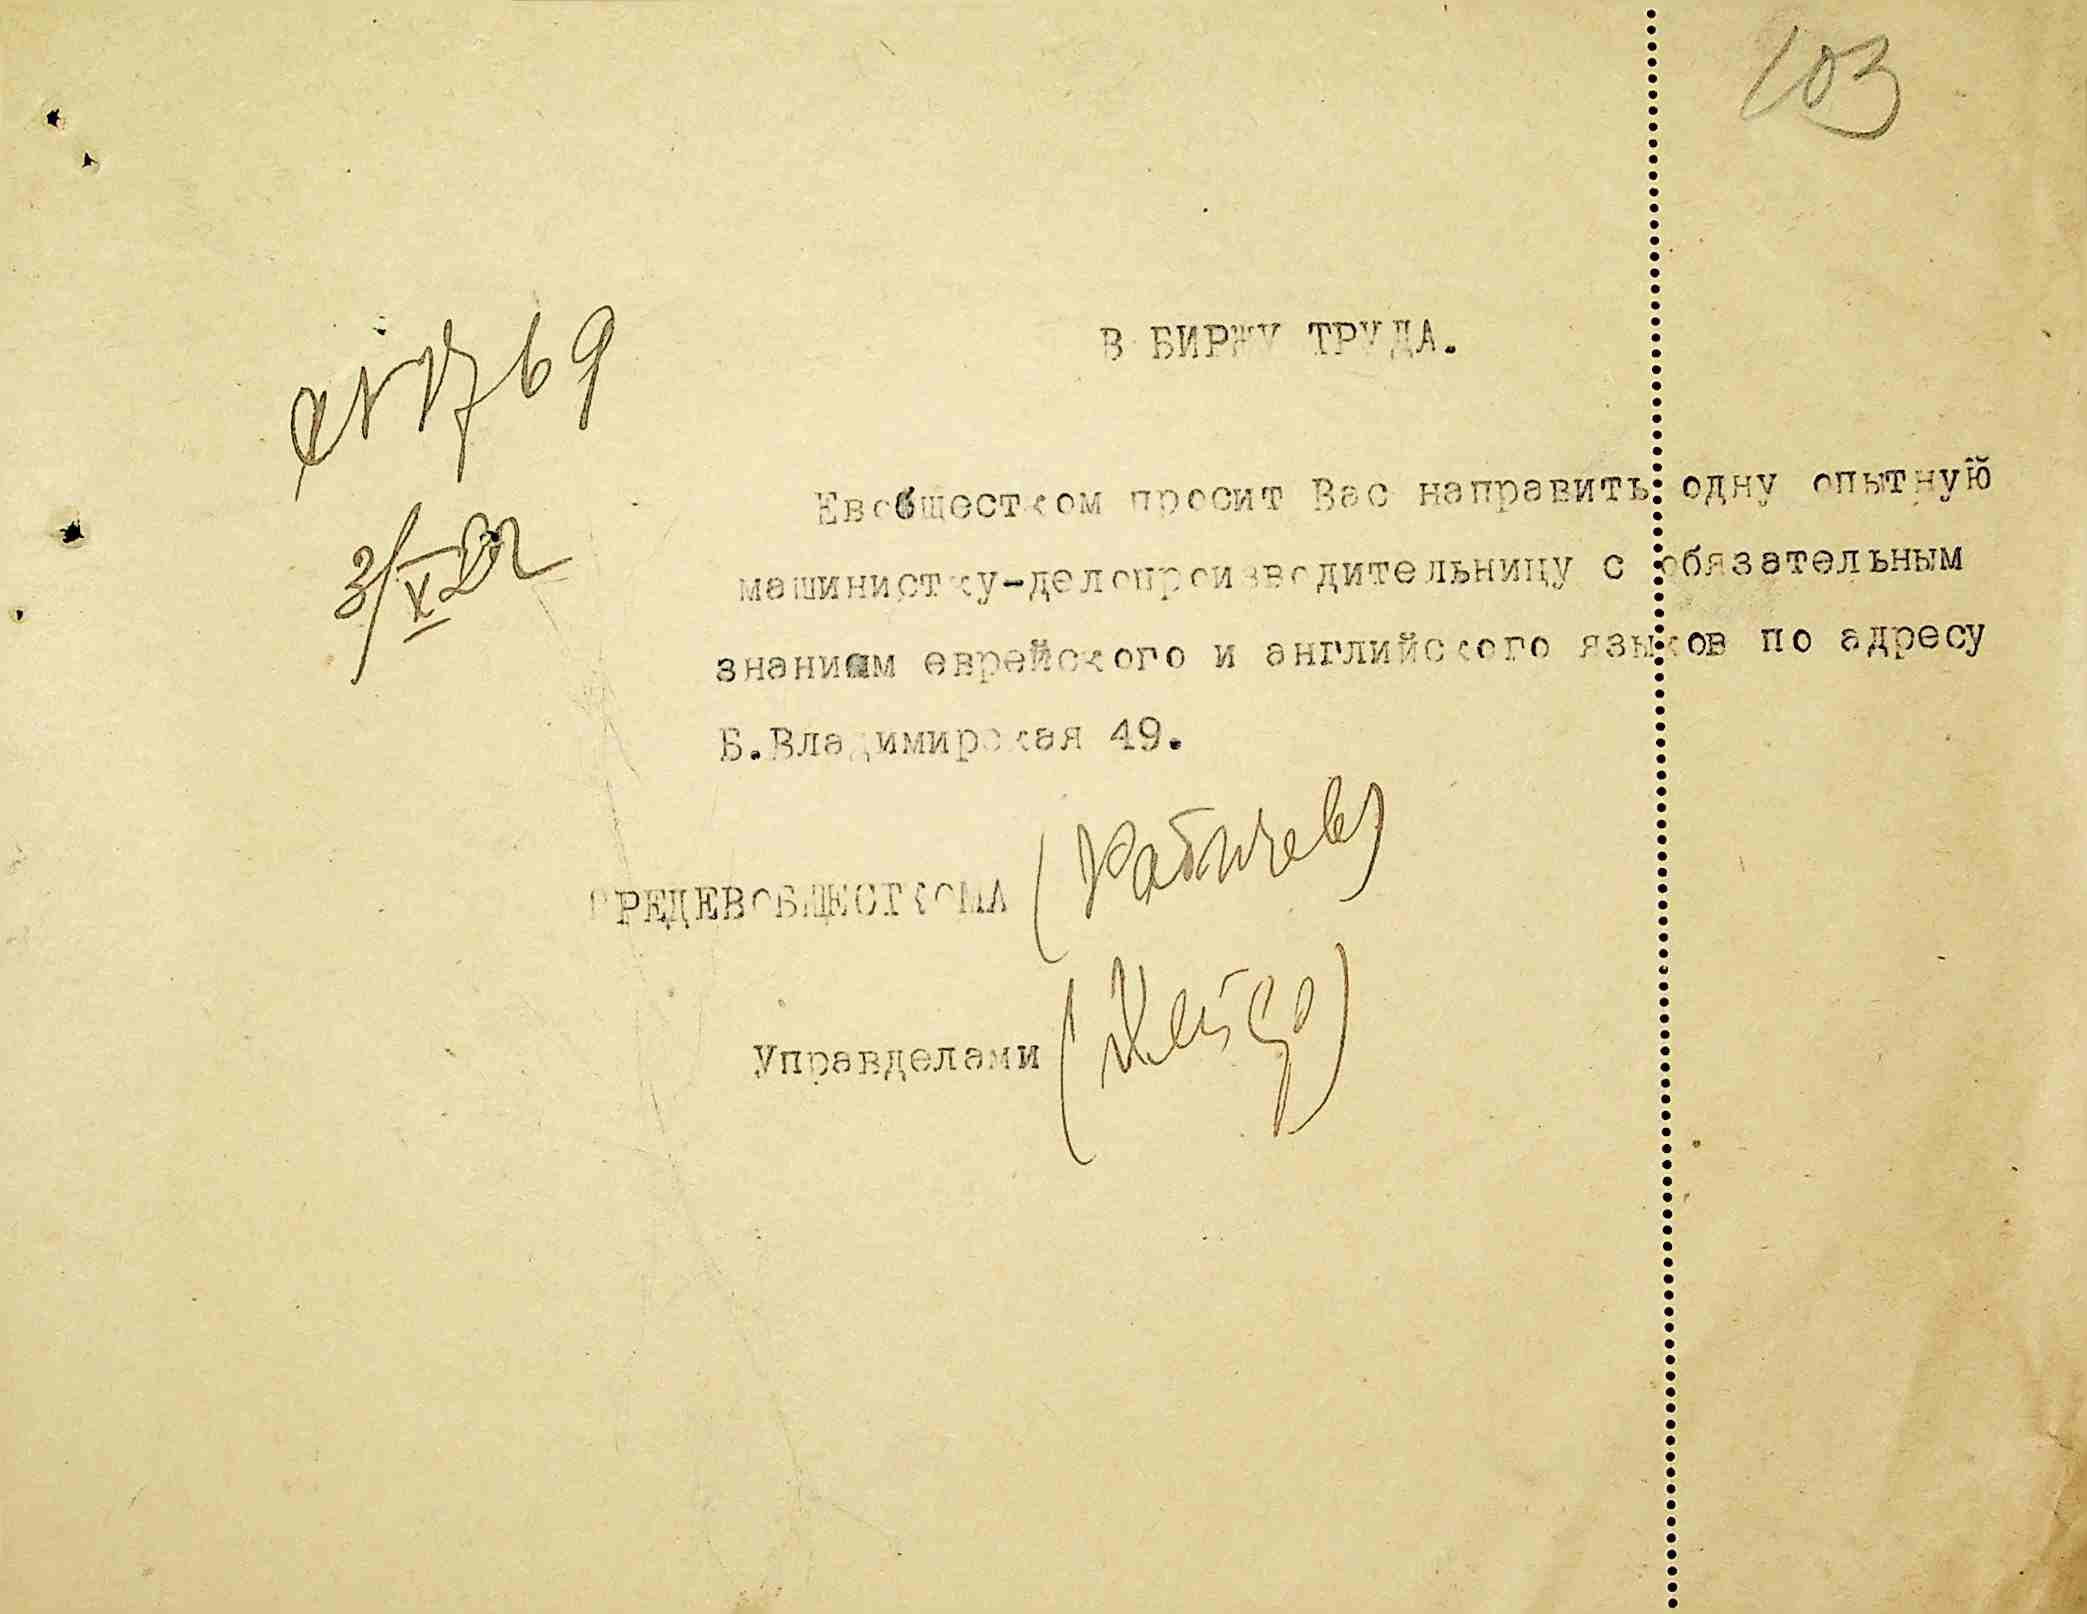 103
В БИРЖУ ТРУДА.
№ 1769
3/X 22
Евобщестком просит Вас направить одну опытную
машинистку-делопроизводительницу с обязательным
знанием еврейского и английского языков по адресу
Б.Владимирская 49.
ПРЕДЕВОБЩЕСТКОМА (Рабичев)
Управделами